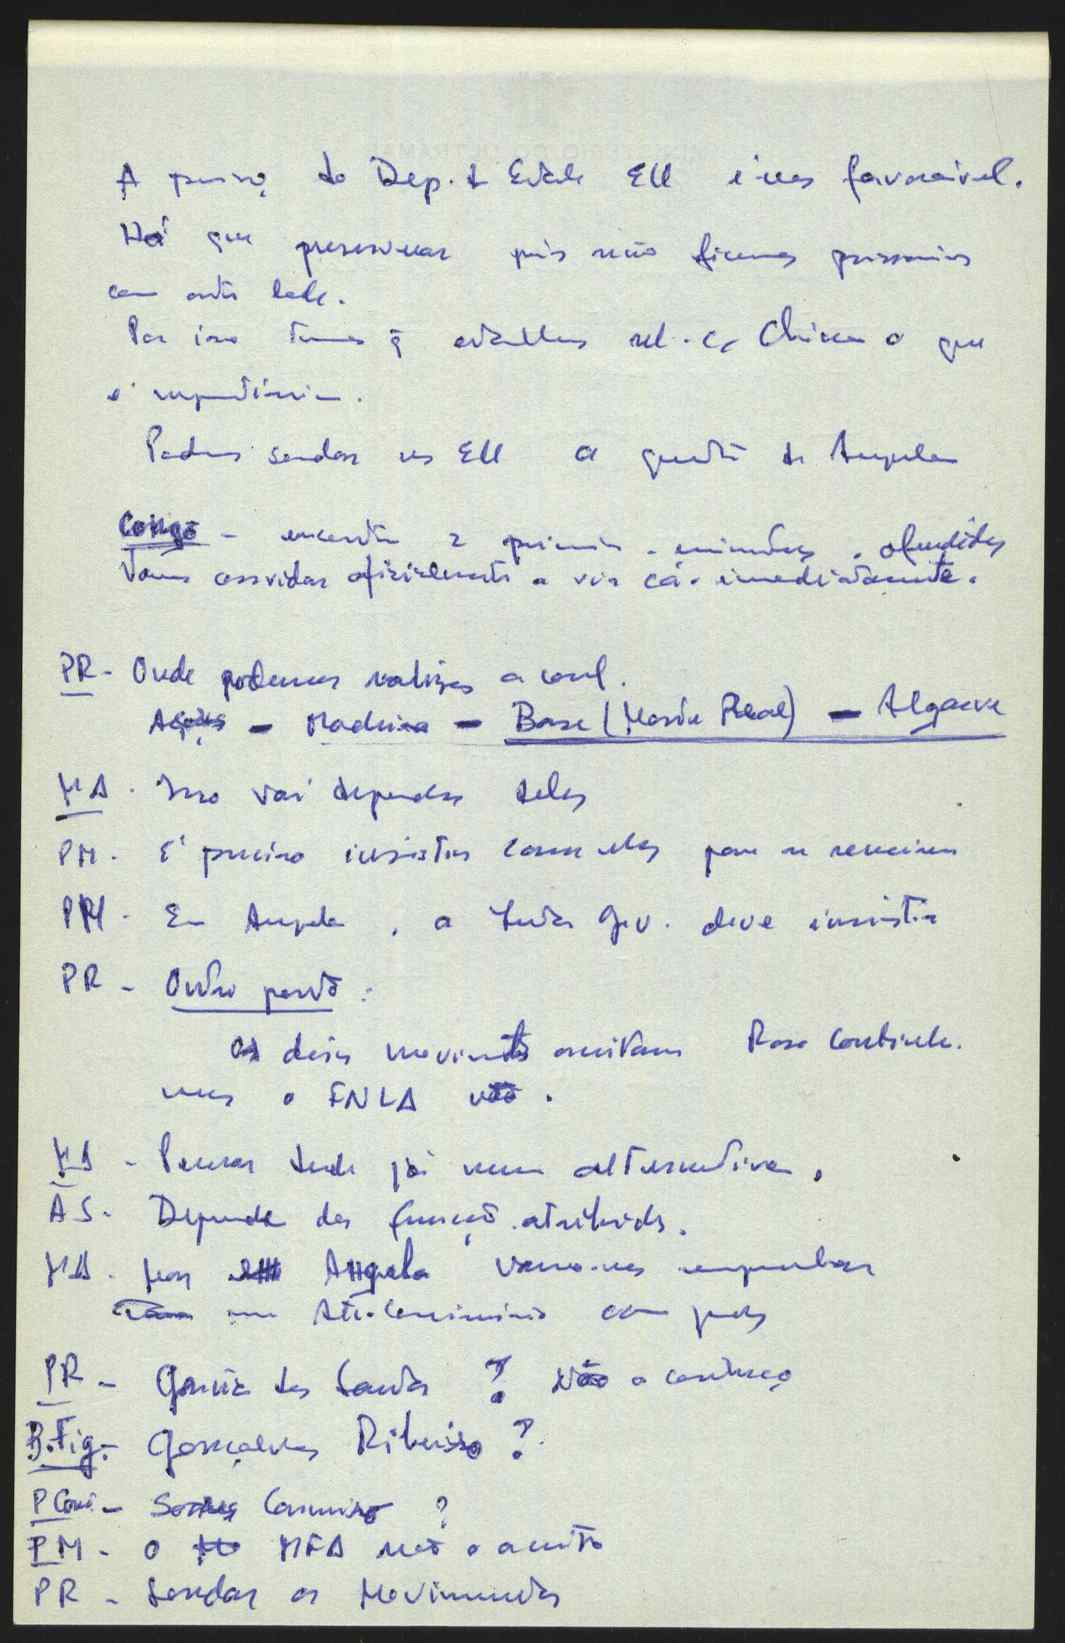 A posição do Dep. de Estado EUU é-nos favorável.
Há que perseverar pois não ficamos prisioneiros
com outro lado.
Por isso temos q estabelecer rel. c/ China o que
é
Podemos sondar os EUU a questão de Angola
Congo - 2 ofendidos
Vamos convidar oficialmente a vir cá imediatamente.
PR - Onde podemos realizar a conf.
Açores - Madeira - Base (Monte Real) - Algarve
MA - Isso vai depender deles
PM - É preciso insistir com eles para se reunirem
PM - Em Angola, a Junta Gov. deve insistir
PR - Outro ponto:
Os dois movimentos aceitam Rosa Coutinho.
mas o FNLA não.
MA - Pensar desde já numa alternativa.
AS - Depende das funções atribuídas.
MA - Mas em Angola vamo-nos
um Alto-Comissário com
PR - Garcia dos Santos? Não o conheço
B. Fig. - Gonçalves Ribeiro?
P Cont - Soares Carneiro?
PM - O MFA não o aceita
PR - Sondar os Movimentos